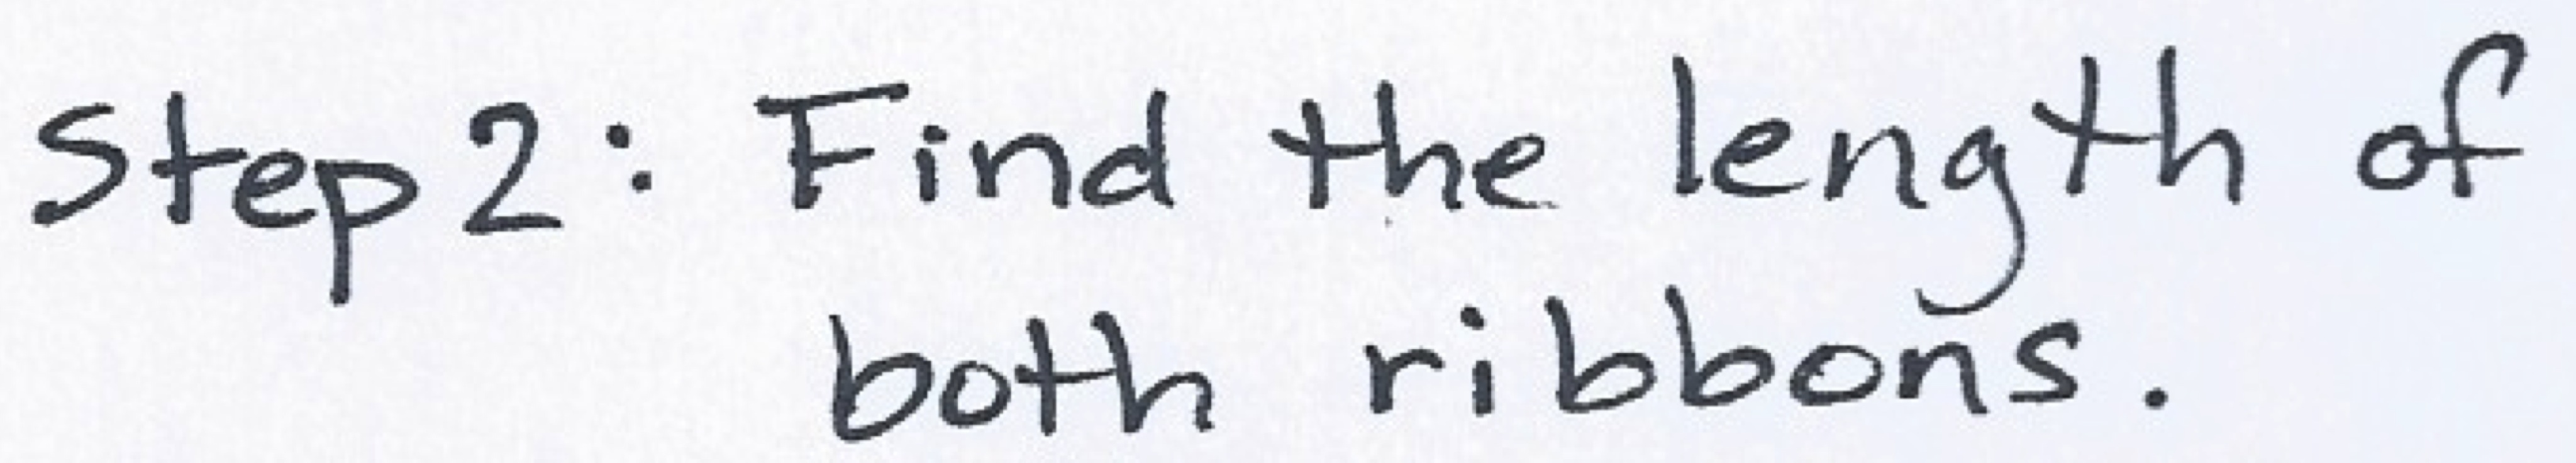 Step 2: Find the length of
both ribbons.